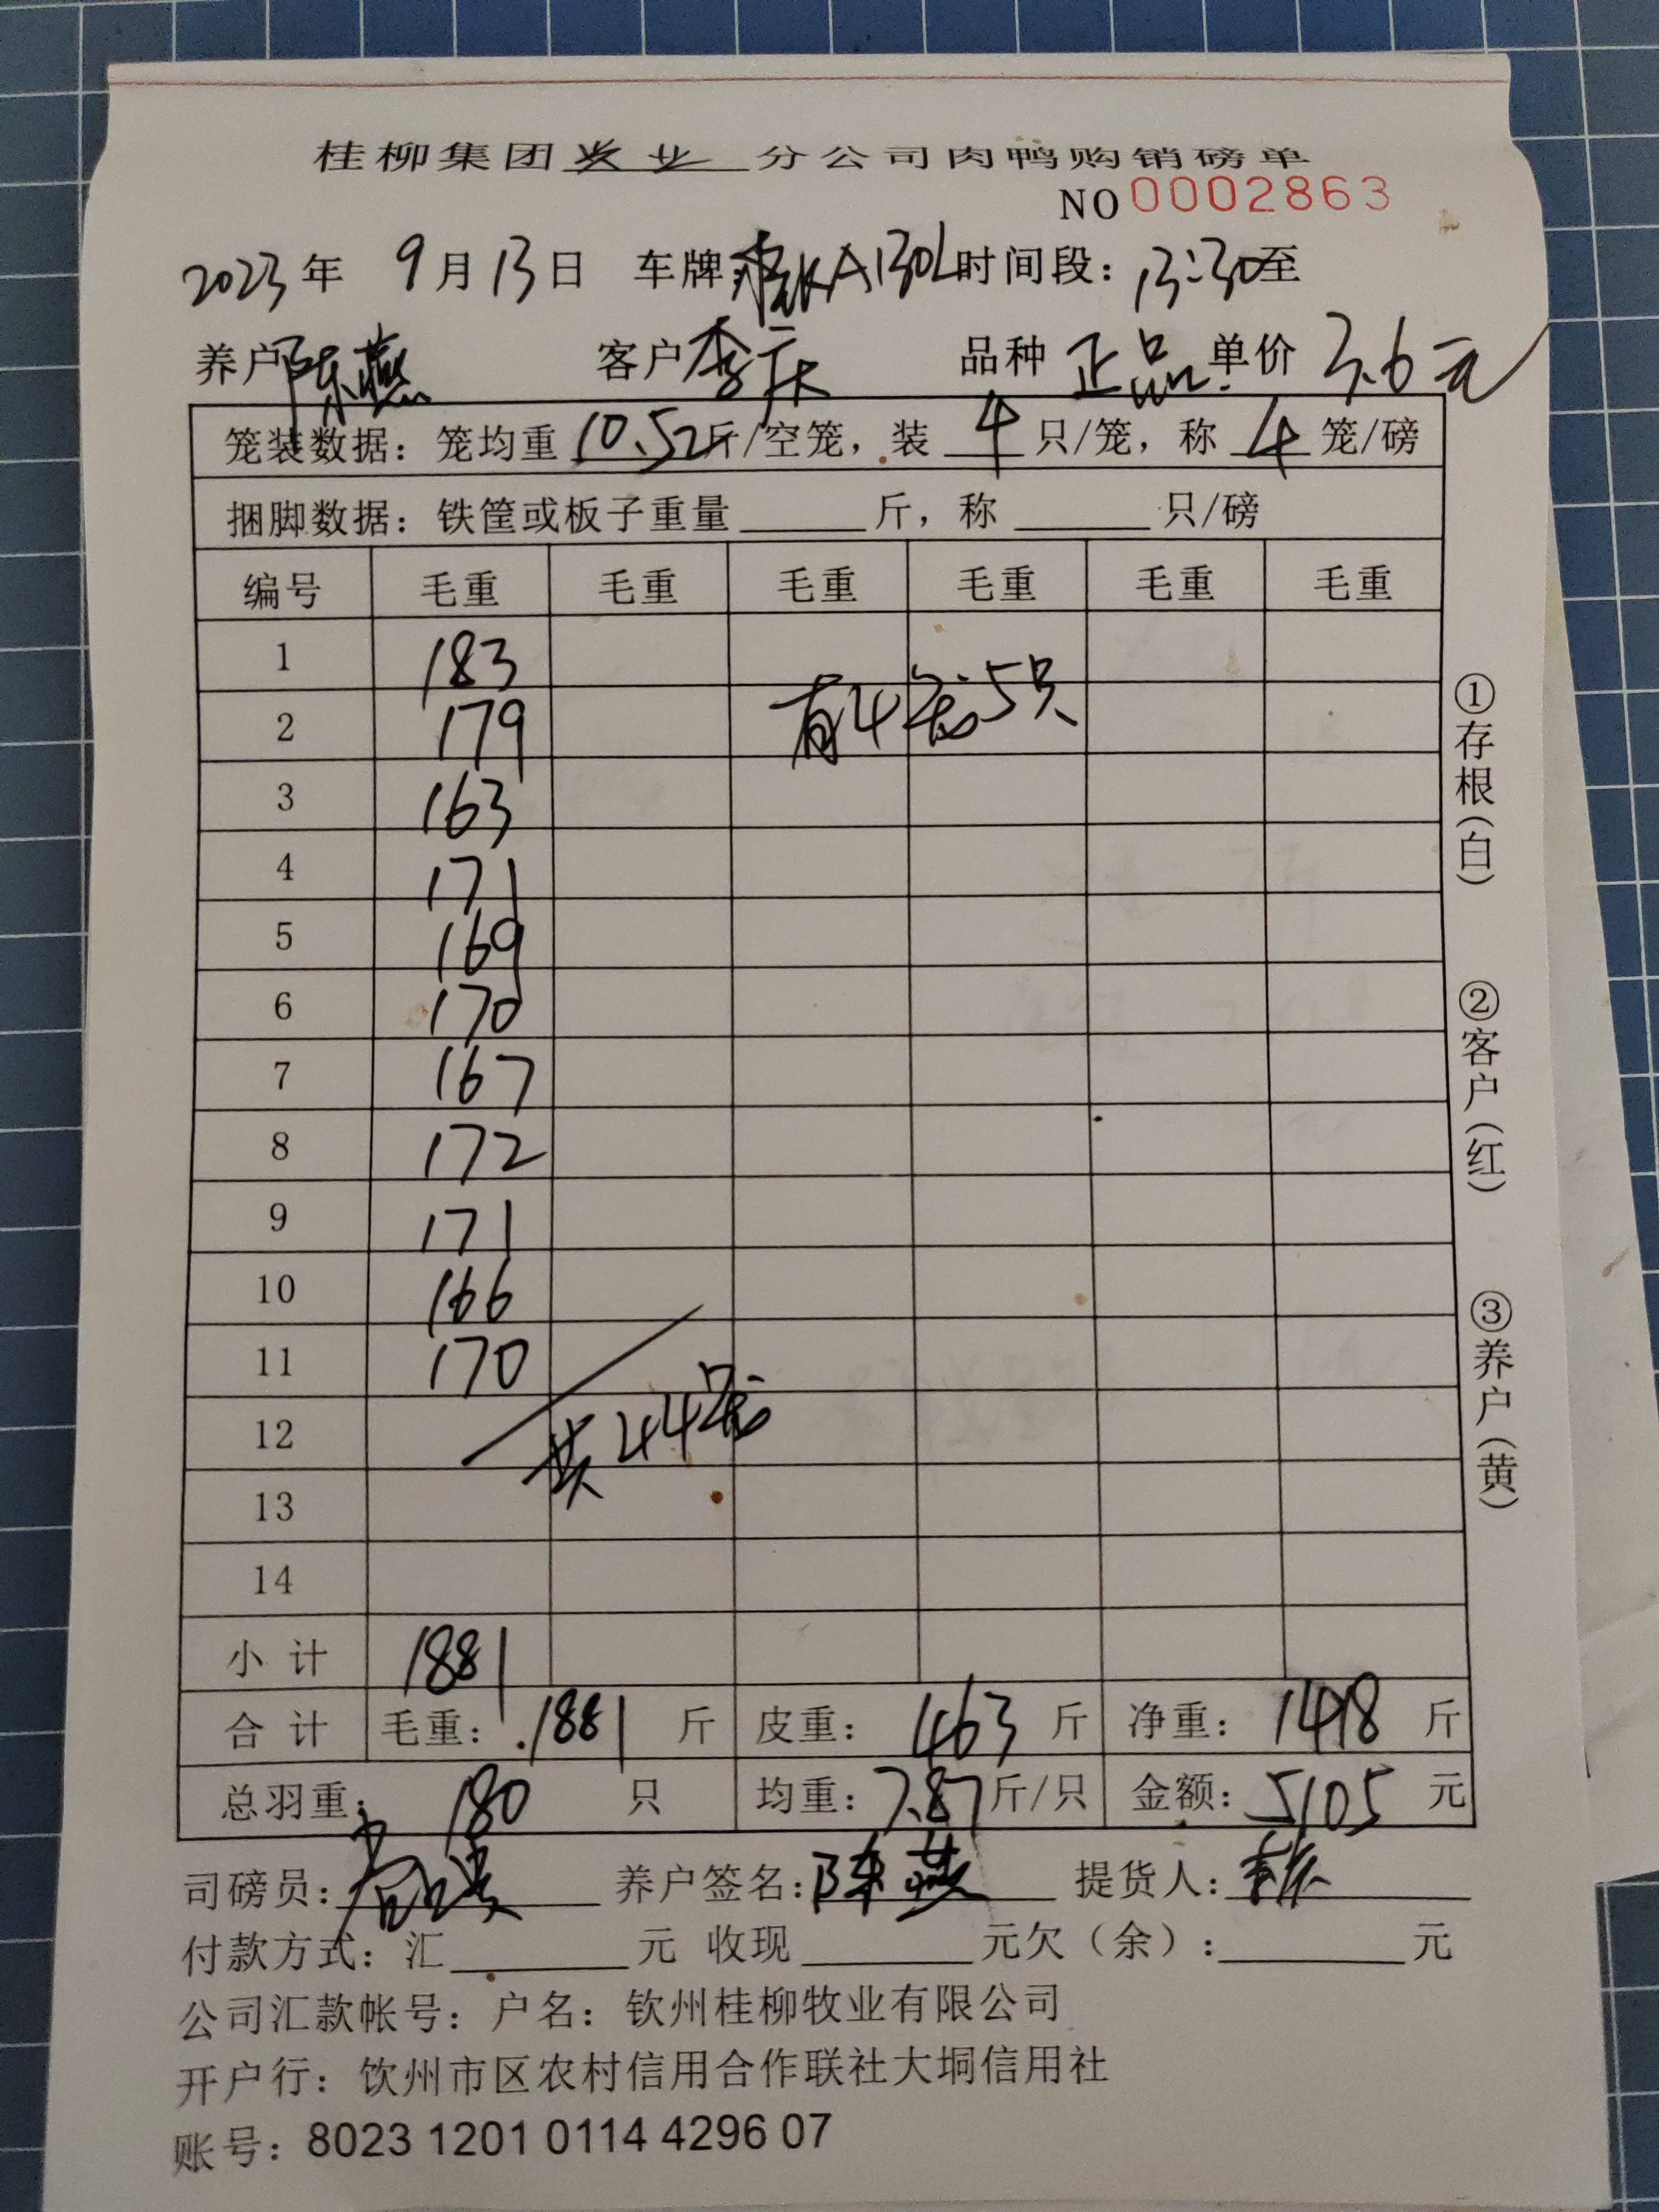 桂柳集团 牧业 分公司肉鸭购销磅单
NO 0002863
2023年 9月13日 车牌 A130L 时间段：13:30至
养户 陈燕 客户 李庆 品种 正品 单价 3.6元
笼装数据：笼均重 10.52斤/空笼，装 4 只/笼，称 4 笼/磅
捆脚数据：铁筐或板子重量 斤，称 只/磅
编号 毛重 毛重 毛重 毛重 毛重 毛重
1 183
2 179 有4笼5只
3 163
4 171
5 169
6 170
7 167
8 172
9 171
10 166
11 170
12 共44笼
13
14
小计 1881
合计 毛重：1881 斤 皮重：463 斤 净重：1418 斤
总羽重：180 只 均重：7.87斤/只 金额：5105 元
司磅员： 养户签名：陈燕 提货人：
付款方式：汇 元 收现 元欠（余）： 元
公司汇款帐号：户名：钦州桂柳牧业有限公司
开户行：钦州市区农村信用合作联社大垌信用社
账号：8023 1201 0114 4296 07
①存根（白）
②客户（红）
③养户（黄）